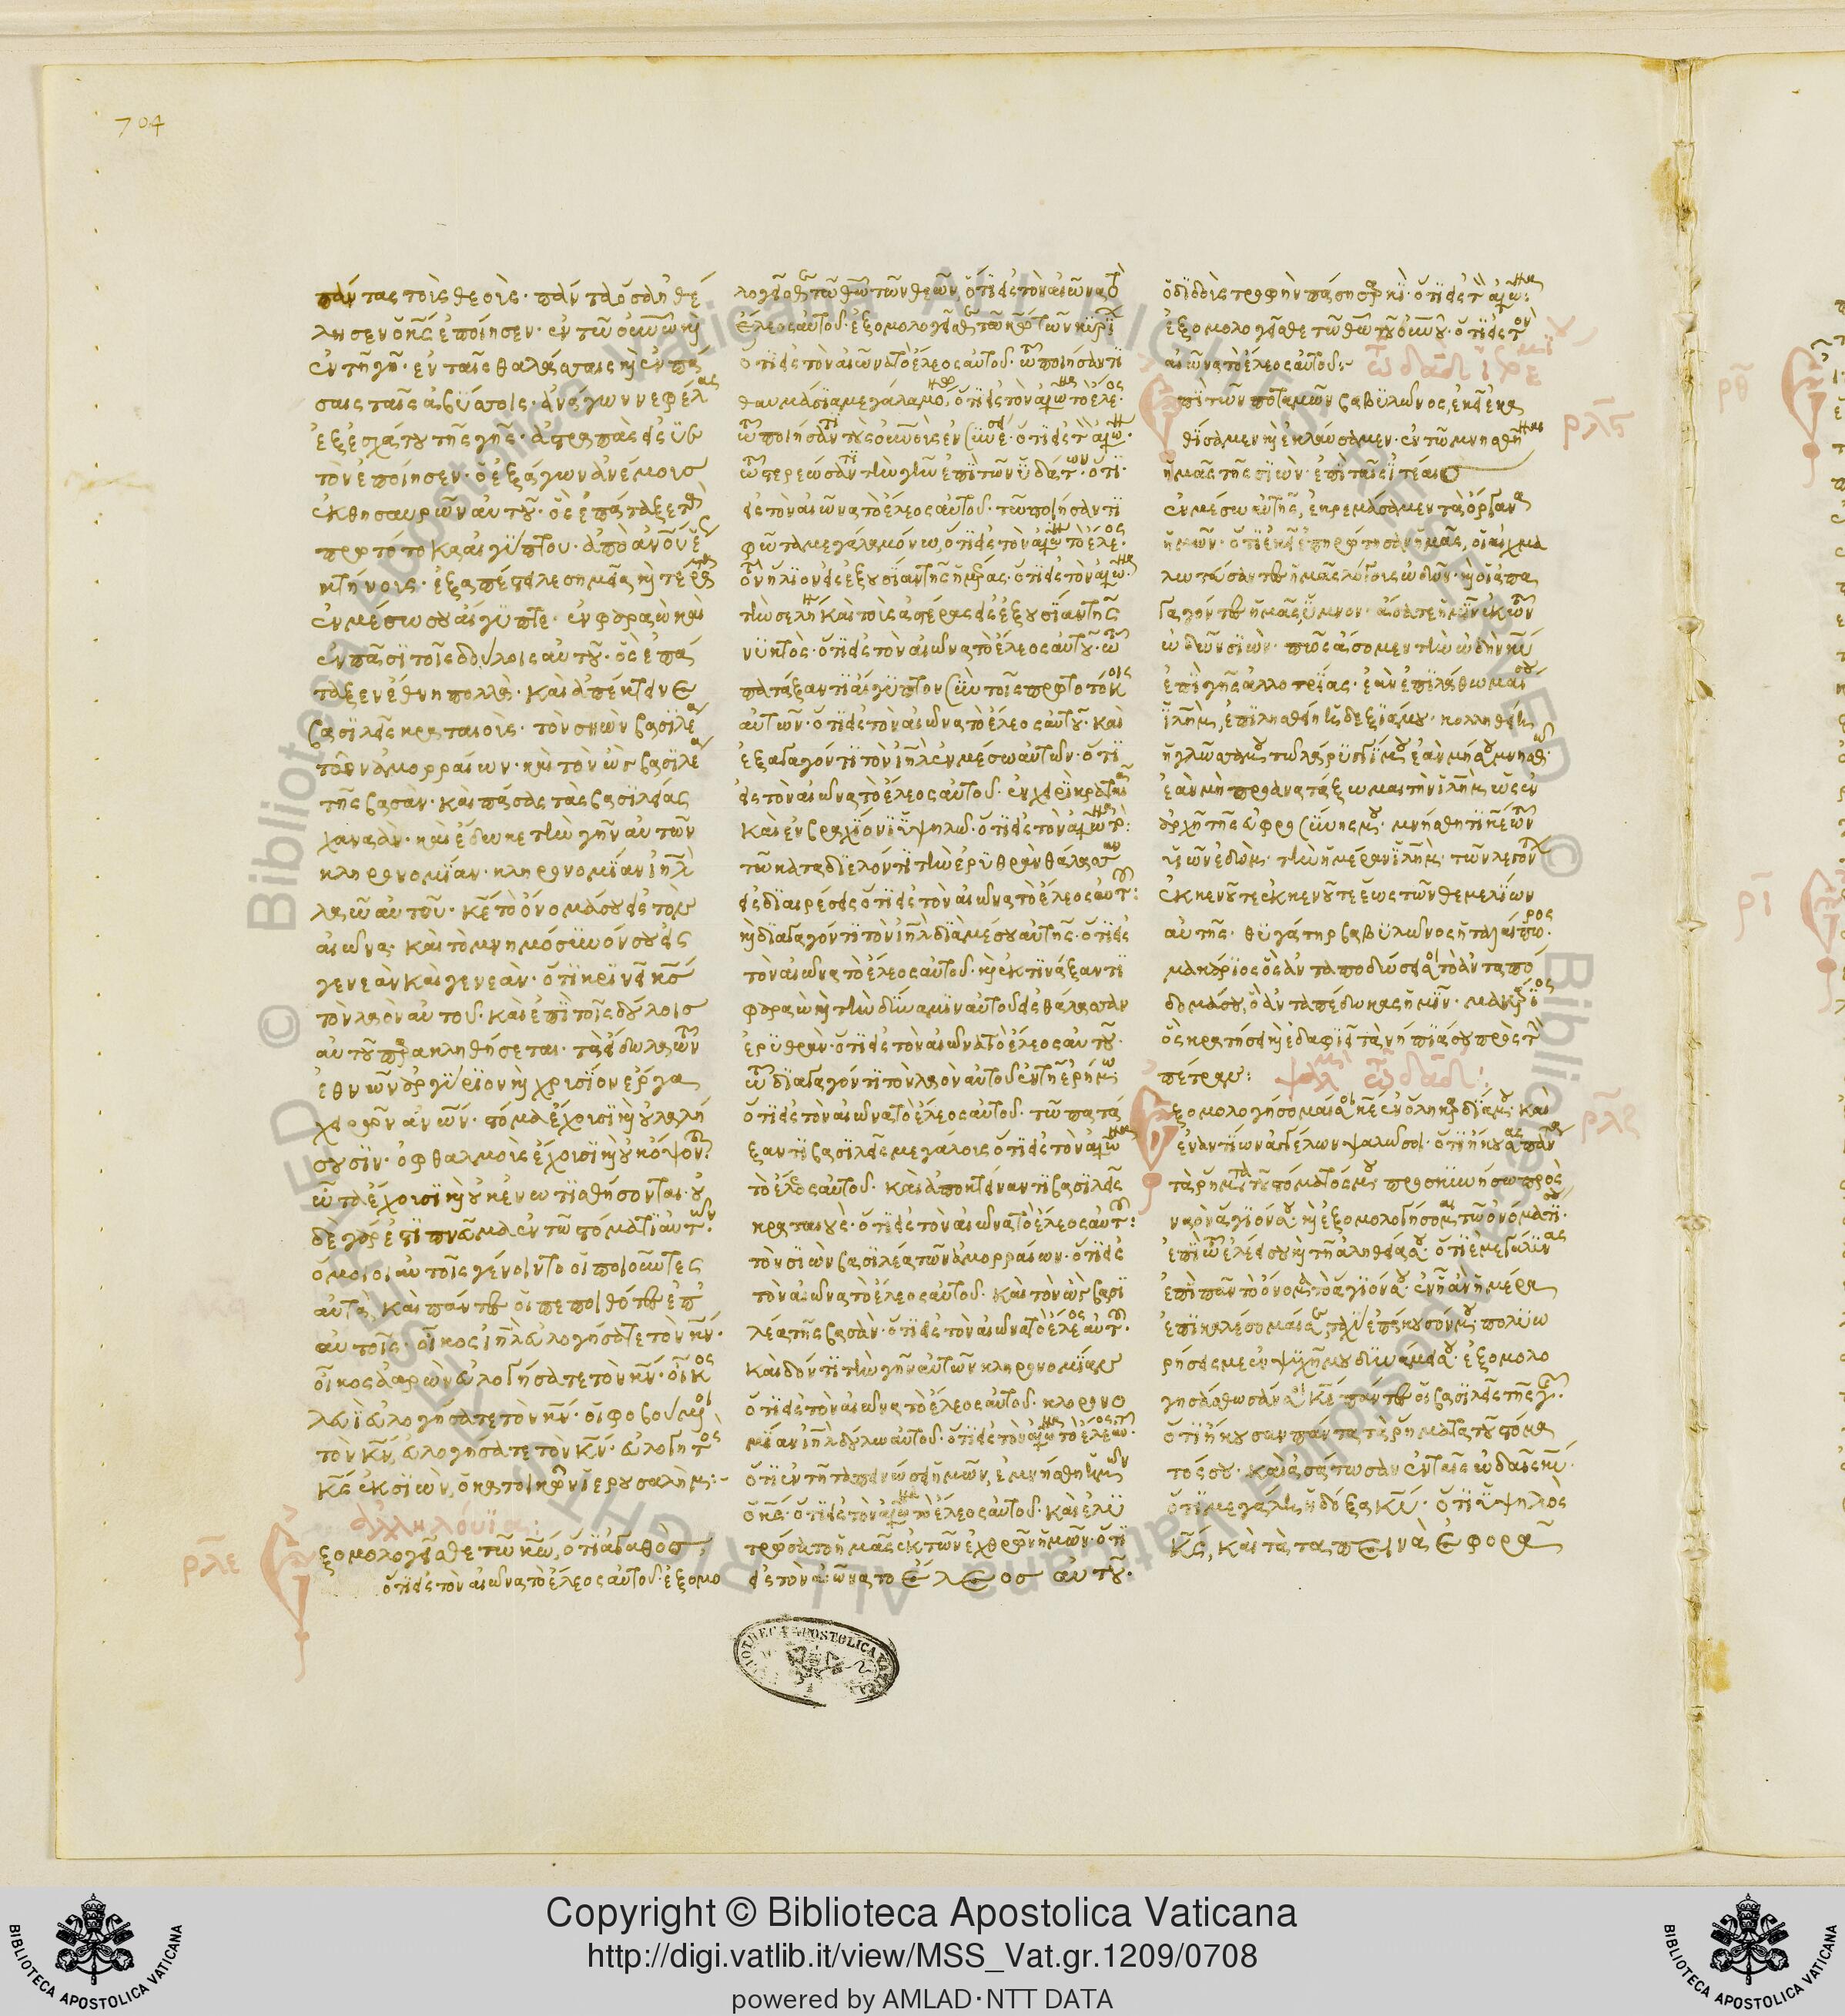 704
πάντας τοὺς θεούς· πάντα ὅσα ἠθέ
λησεν ὁ κς ἐποίησεν· ἐν τῶ οὐνῶ καὶ
ἐν τῆ γῆ· ἐν ταῖς θαλάσσαις καὶ ἐν πά
σαις ταῖς ἀβύσσοις· ἀνάγων νεφέλας
ἐξ ἐσχάτου τῆς γῆς· ἀστραπὰς εἰς ὑε
τὸν ἐποίησεν· ὁ ἐξάγων ἀνέμους
ἐκ θησαυρῶν αὐτοῦ· ὃς ἐπάταξε τὰ
πρωτότοκα αἰγύπτου· ἀπὸ ἀνου ἕως
κτήνους· ἐξαπέστειλε σημεῖα καὶ τέρατα
ἐν μέσω σου αἴγυπτε· ἐν φαραὼ καὶ
ἐν πᾶσι τοῖς δούλοις αὐτοῦ· ὃς ἐπά
ταξεν ἔθνη πολλά· καὶ ἀπέκτεινε
βασιλεῖς κραταιούς· τὸν σηὼν βασιλέα
τῶν ἀμορραίων· καὶ τὸν ὢγ βασιλέα
τῆς βασάν· καὶ πάσας τὰς βασιλείας
χαναάν· καὶ ἔδωκε τὴν γῆν αὐτῶν
κληρονομίαν· κληρονομίαν ιηλ
λαῶ αὐτοῦ· κε τὸ ὄνομά σου εἰς τὸν
αἰῶνα· καὶ τὸ μνημόσυνόν σου εἰς
γενεὰν καὶ γενεάν· ὅτι κρινεῖ κς
τὸν λαὸν αὐτοῦ· καὶ ἐπὶ τοῖς δούλοις
αὐτοῦ παρακληθήσεται· τὰ εἴδωλα τῶν
ἐθνῶν ἀργύριον καὶ χρυσίον ἔργα
χειρῶν ανων· στόμα ἔχουσι καὶ οὐ λαλή
σουσιν· ὀφθαλμοὺς ἔχουσι καὶ οὐκ ὄψονται
ὦτα ἔχουσι καὶ οὐκ ἐνωτισθήσονται· οὐ
δὲ γάρ ἐστι πνεῦμα ἐν τῶ στόματι αὐτῶν·
ὅμοιοι αὐτοῖς γένοιντο οἱ ποιοῦντες
αὐτά, καὶ πάντες οἱ πεποιθότες ἐπ
αὐτοῖς· οἶκος ιηλ εὐλογήσατε τὸν κν·
οἶκος ἀαρὼν εὐλογήσατε τὸν κν· οἶκος
λευὶ εὐλογήσατε τὸν κν· οἱ φοβούμενοι
τὸν κν, εὐλογήσατε τὸν κν· εὐλογητὸς
κς ἐκ σιών, ὁ κατοικῶν ιερουσαλήμ:
ἀλληλούϊα:
ρλε Ἐξομολογεῖσθε τῶ κω, ὅτι ἀγαθός,
ὅτι εἰς τὸν αἰῶνα τὸ ἔλεος αὐτοῦ· ἐξομο
λογεῖσθε τῶ θω τῶν θεῶν, ὅτι εἰς τὸν αἰῶνα τὸ
ἔλεος αὐτοῦ· ἐξομολογεῖσθε τῶ κω τῶν κυρίων
ὅτι εἰς τὸν αἰῶνα τὸ ἔλεος αὐτοῦ· τῶ ποιήσαντι
θαυμάσια μεγάλα μόνω, ὅτι εἰς τὸν αἰῶνα τὸ ἔλεος·
τῶ ποιήσαντι τοὺς οὐνοὺς ἐν συνέσει· ὅτι εἰς τ αἰῶνα·
τῶ στερεώσαντι τὴν γῆν ἐπὶ τῶν ὑδάτων· ὅτι·
εἰς τὸν αἰῶνα τὸ ἔλεος αὐτοῦ· τῶ ποιήσαντι
φῶτα μεγάλα μόνω, ὅτι εἰς τὸν αἰῶνα τὸ ἔλεος·
τὸν ἥλιον εἰς ἐξουσίαν τῆς ἡμέρας· ὅτι εἰς τὸν αἰῶνα·
τὴν σελήνην καὶ τοὺς ἀστέρας εἰς ἐξουσίαν τῆς
νυκτός· ὅτι εἰς τὸν αἰῶνα τὸ ἔλεος αὐτοῦ· τῶ
πατάξαντι αἴγυπτον σὺν τοῖς πρωτοτόκοις
αὐτῶν· ὅτι εἰς τὸν αἰῶνα τὸ ἔλεος αὐτοῦ· καὶ
ἐξαγαγόντι τὸν ιηλ ἐκ μέσου αὐτῶν· ὅτι
εἰς τὸν αἰῶνα τὸ ἔλεος αὐτοῦ· ἐν χειρὶ κραταιᾶ
καὶ ἐν βραχίονι ὑψηλῶ· ὅτι εἰς τὸν αἰῶνα τὸ:
τῶ καταδιελόντι τὴν ἐρυθρὰν θάλασσαν
εἰς διαιρέσεις ὅτι εἰς τὸν αἰῶνα τὸ ἔλεος αὐτοῦ:
καὶ διαγαγόντι τὸν ιηλ διὰ μέσου αὐτῆς· ὅτι εἰς
τὸν αἰῶνα τὸ ἔλεος αὐτοῦ· καὶ ἐκτινάξαντι
φαραὼ καὶ τὴν δύναμιν αὐτοῦ εἰς θάλασσαν
ἐρυθράν· ὅτι εἰς τὸν αἰῶνα τὸ ἔλεος αὐτοῦ·
τῶ διαγαγόντι τὸν λαὸν αὐτοῦ ἐν τῆ ἐρήμω
ὅτι εἰς τὸν αἰῶνα τὸ ἔλεος αὐτοῦ· τῶ πατά
ξαντι βασιλεῖς μεγάλους ὅτι εἰς τὸν αἰῶνα
τὸ ἔλεος αὐτοῦ· καὶ ἀποκτείναντι βασιλεῖς
κραταιούς· ὅτι εἰς τὸν αἰῶνα τὸ ἔλεος αὐτοῦ:
τὸν σιὼν βασιλέα τῶν ἀμορραίων· ὅτι εἰς
τὸν αἰῶνα τὸ ἔλεος αὐτοῦ· καὶ τὸν ὢγ βασι
λέα τῆς βασάν· ὅτι εἰς τὸν αἰῶνα τὸ ἔλεος αὐτοῦ·
καὶ δόντι τὴν γῆν αὐτῶν κληρονομίαν
ὅτι εἰς τὸν αἰῶνα τὸ ἔλεος αὐτοῦ· κληρονο
μίαν ιηλ δούλω αὐτοῦ· ὅτι εἰς τὸν αἰῶνα τὸ ἔλεος αὐτοῦ·
ὅτι ἐν τῆ ταπεινώσει ἡμῶν, ἐμνήσθη ἡμῶν
ὁ κς· ὅτι εἰς τὸν αἰῶνα τὸ ἔλεος αὐτοῦ· καὶ ἐλυ
τρώσατο ἡμᾶς ἐκ τῶν ἐχθρῶν ἡμῶν· ὅτι
εἰς τὸν αἰῶνα τὸ ἔλεος αὐτοῦ·
ὁ διδοὺς τροφὴν πάση σαρκί· ὅτι εἰς τ αἰῶνα:
ἐξομολογεῖσθε τῶ θω τοῦ οὐνοῦ· ὅτι εἰς τὸν
αἰῶνα τὸ ἔλεος αὐτοῦ:
τῶ δαδ ἱερεμίου
ρλς Ἐπὶ τῶν ποταμῶν βαβυλῶνος, ἐκεῖ ἐκα
θίσαμεν καὶ ἐκλαύσαμεν· ἐν τῶ μνησθῆναι
ἡμᾶς τῆς σιών· ἐπὶ ταῖς ἰτέαις
ἐν μέσω αὐτῆς, ἐκρεμάσαμεν τὰ ὄργανα
ἡμῶν· ὅτι ἐκεῖ ἐπηρώτησαν ἡμᾶς, οἱ αἰχμα
λωτεύσαντες ἡμᾶς λόγους ὠδῶν· καὶ οἱ ἀπα
γαγόντες ἡμᾶς ὕμνον· ἄσατε ἡμῖν ἐκ τῶν
ὠδῶν σιών· πῶς ἄσομεν τὴν ὠδὴν κυ
ἐπὶ γῆς ἀλλοτρίας· ἐὰν ἐπιλάθωμαί σου
ιλημ, ἐπιλησθείη ἡ δεξιά μου· κολληθείη
ἡ γλῶσσά μου τῶ λάρυγγί μου ἐὰν μή σου μνησθῶ·
ἐὰν μὴ προανατάξωμαι τὴν ιλημ, ὡς ἐν
ἀρχῆ τῆς εὐφροσύνης μου· μνήσθητι κε τῶν
υἱῶν ἐδώμ· τὴν ἡμέραν ιλημ· τῶν λεγόντων
ἐκκενοῦτε ἐκκενοῦτε ἕως τῶν θεμελίων
αὐτῆς· θυγάτηρ βαβυλῶνος ἡ ταλαίπωρος·
μακάριος ὃς ἀνταποδώσει σοι τὸ ἀνταπό
δομά σου, ὃ ἀνταπέδωκας ἡμῖν· μακάριος
ὃς κρατήσει καὶ ἐδαφιεῖ τὰ νήπιά σου πρὸς τὴν
πέτραν:
ψαλμὸς τῶ δαδ:
ρλζ Ἐξομολογήσομαί σοι κε ἐν ὅλη καρδία μου· καὶ
ἐναντίον ἀγγέλων ψαλῶ σοι· ὅτι ἤκουσας πάντα
τὰ ῥήματα τοῦ στόματός μου· προσκυνήσω πρὸς
ναὸν ἅγιόν σου· καὶ ἐξομολογήσομαι τῶ ὀνόματί σου·
ἐπὶ τῶ ἐλέει σου καὶ τῆ ἀληθεία σου· ὅτι ἐμεγάλυνας
ἐπὶ πᾶν τὸ ὄνομα τὸ ἅγιόν σου· ἐν ἧ ἂν ἡμέρα
ἐπικαλέσωμαί σε, ταχὺ ἐπάκουσόν μου· πολυω
ρήσεις με ἐν ψυχῆ μου δυνάμει σου· ἐξομολο
γησάσθωσάν σοι κε πάντες οἱ βασιλεῖς τῆς γῆς·
ὅτι ἤκουσαν πάντα τὰ ῥήματα τοῦ στόμα
τός σου· καὶ ἀσάτωσαν ἐν ταῖς ὠδαῖς κυ·
ὅτι μεγάλη ἡ δόξα κυ· ὅτι ὑψηλὸς
κς, καὶ τὰ ταπεινὰ ἐφορᾶ
ρθ
ρι
Copyright © Biblioteca Apostolica Vaticana
http://digi.vatlib.it/view/MSS_Vat.gr.1209/0708
powered by AMLAD·NTT DATA
BIBLIOTECA APOSTOLICA VATICANA
BIBLIOTECA APOSTOLICA VATICANA